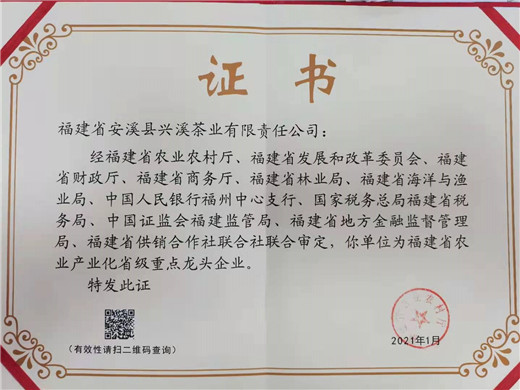 证书
福建省安溪县兴溪茶业有限责任公司：
经福建省农业农村厅、福建省发展和改革委员会、福建
省财政厅、福建省商务厅、福建省林业局、福建省海洋与渔
业局、中国人民银行福州中心支行、国家税务总局福建省税
务局、中国证监会福建监管局、福建省地方金融监督管理
局、福建省供销合作社联合社联合审定，你单位为福建省农
业产业化省级重点龙头企业。
特发此证
2021年1月
（有效性请扫二维码查询）